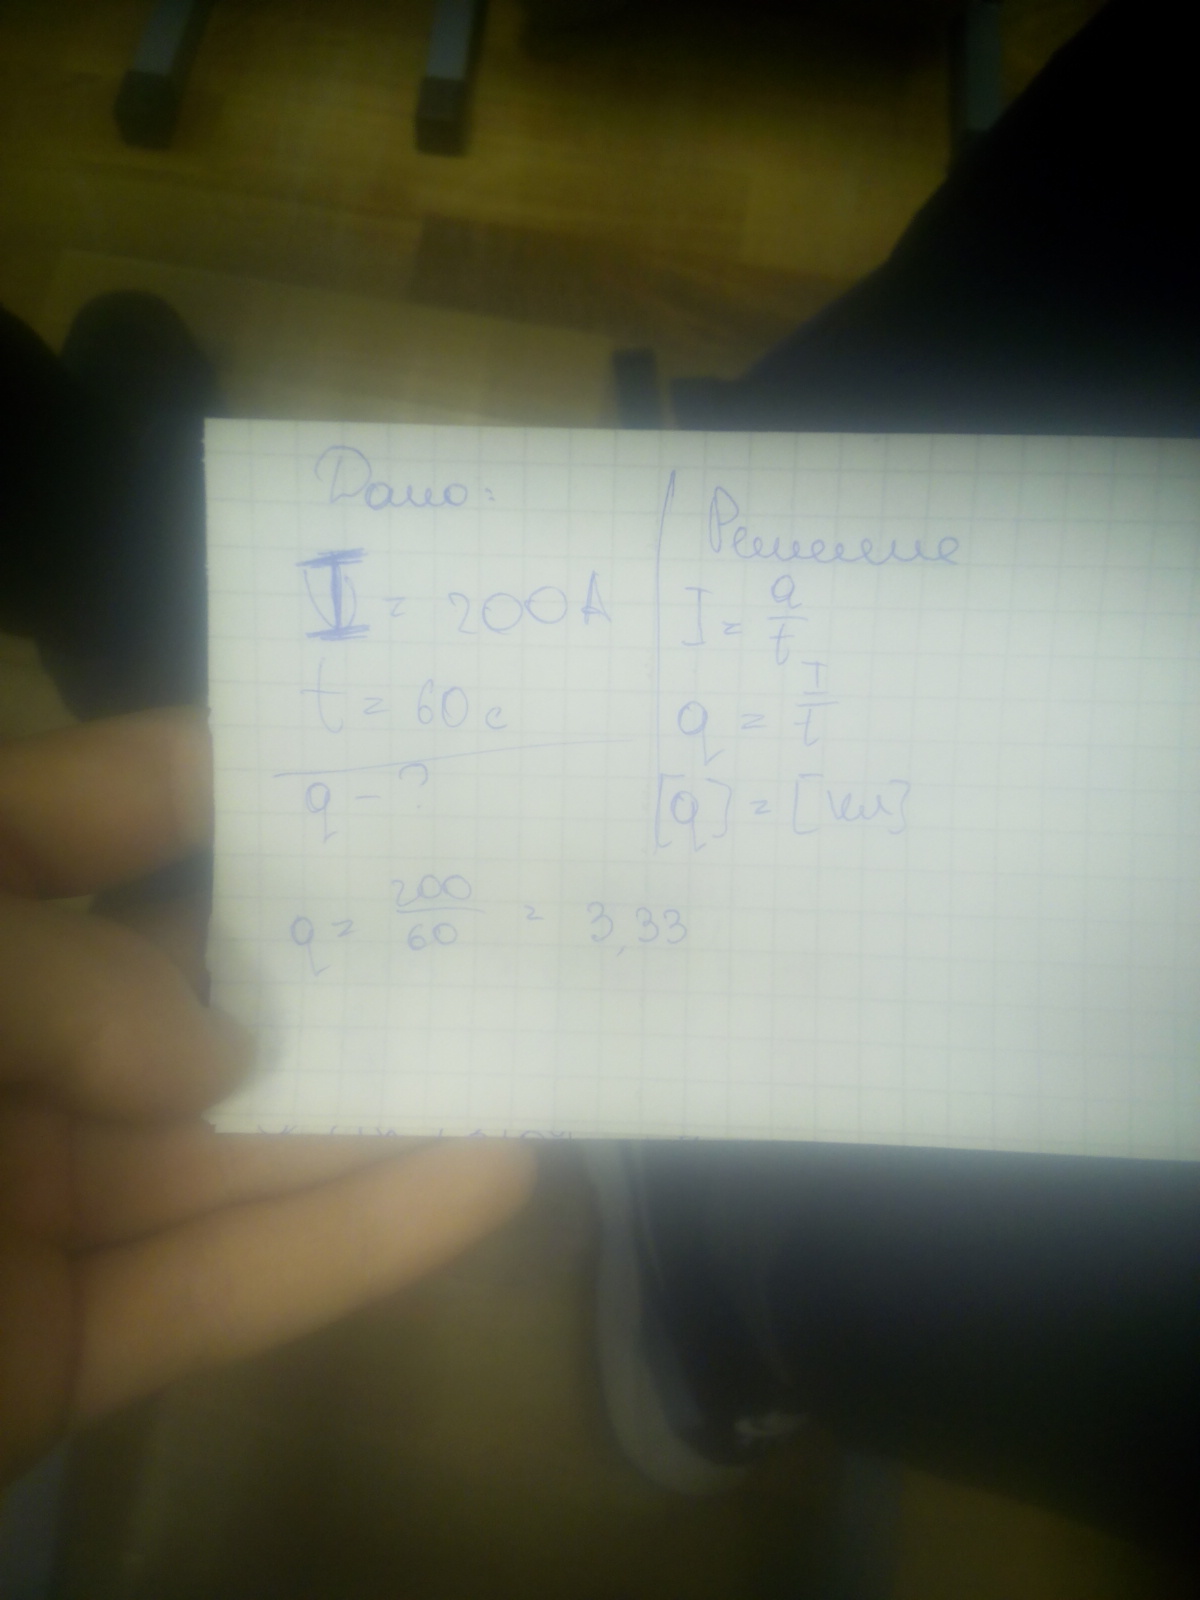 Дано:
I = 200А
t = 60 с
q - ?
Решение
I = q/t
q = I/t
[q] = [кл]
q = 200/60 = 3,33